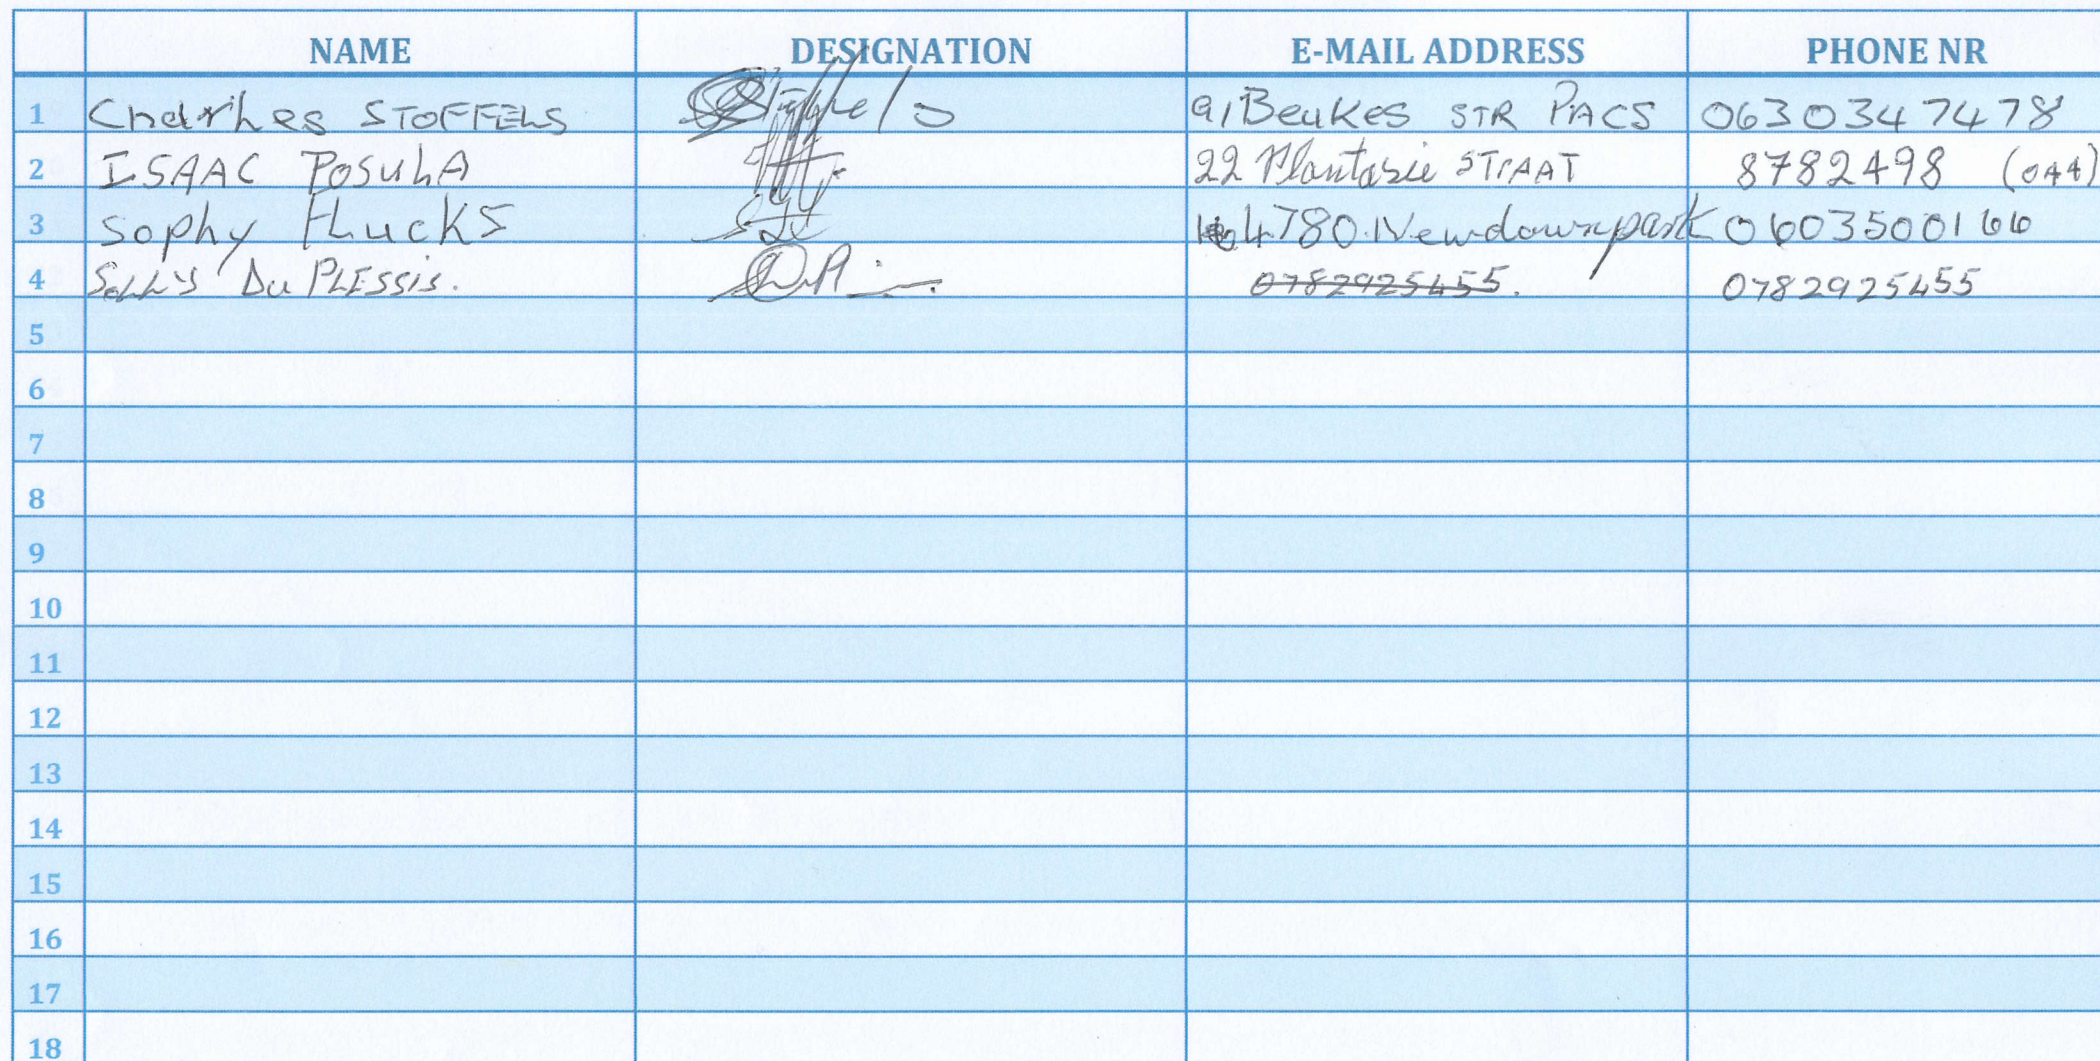 NAME DESIGNATION E-MAIL ADDRESS PHONE NR
1 Charlhes STOFFELS 91 Beukes STR PACS 0630347478
2 ISAAC POSUhA 22 Plantasie STRAAT 8782498 (044)
3 Sophy FLucks 4780 Newdownpark 0603500166
4 Du PLESSIS. 0782925455. 0782925455
5
6
7
8
9
10
11
12
13
14
15
16
17
18